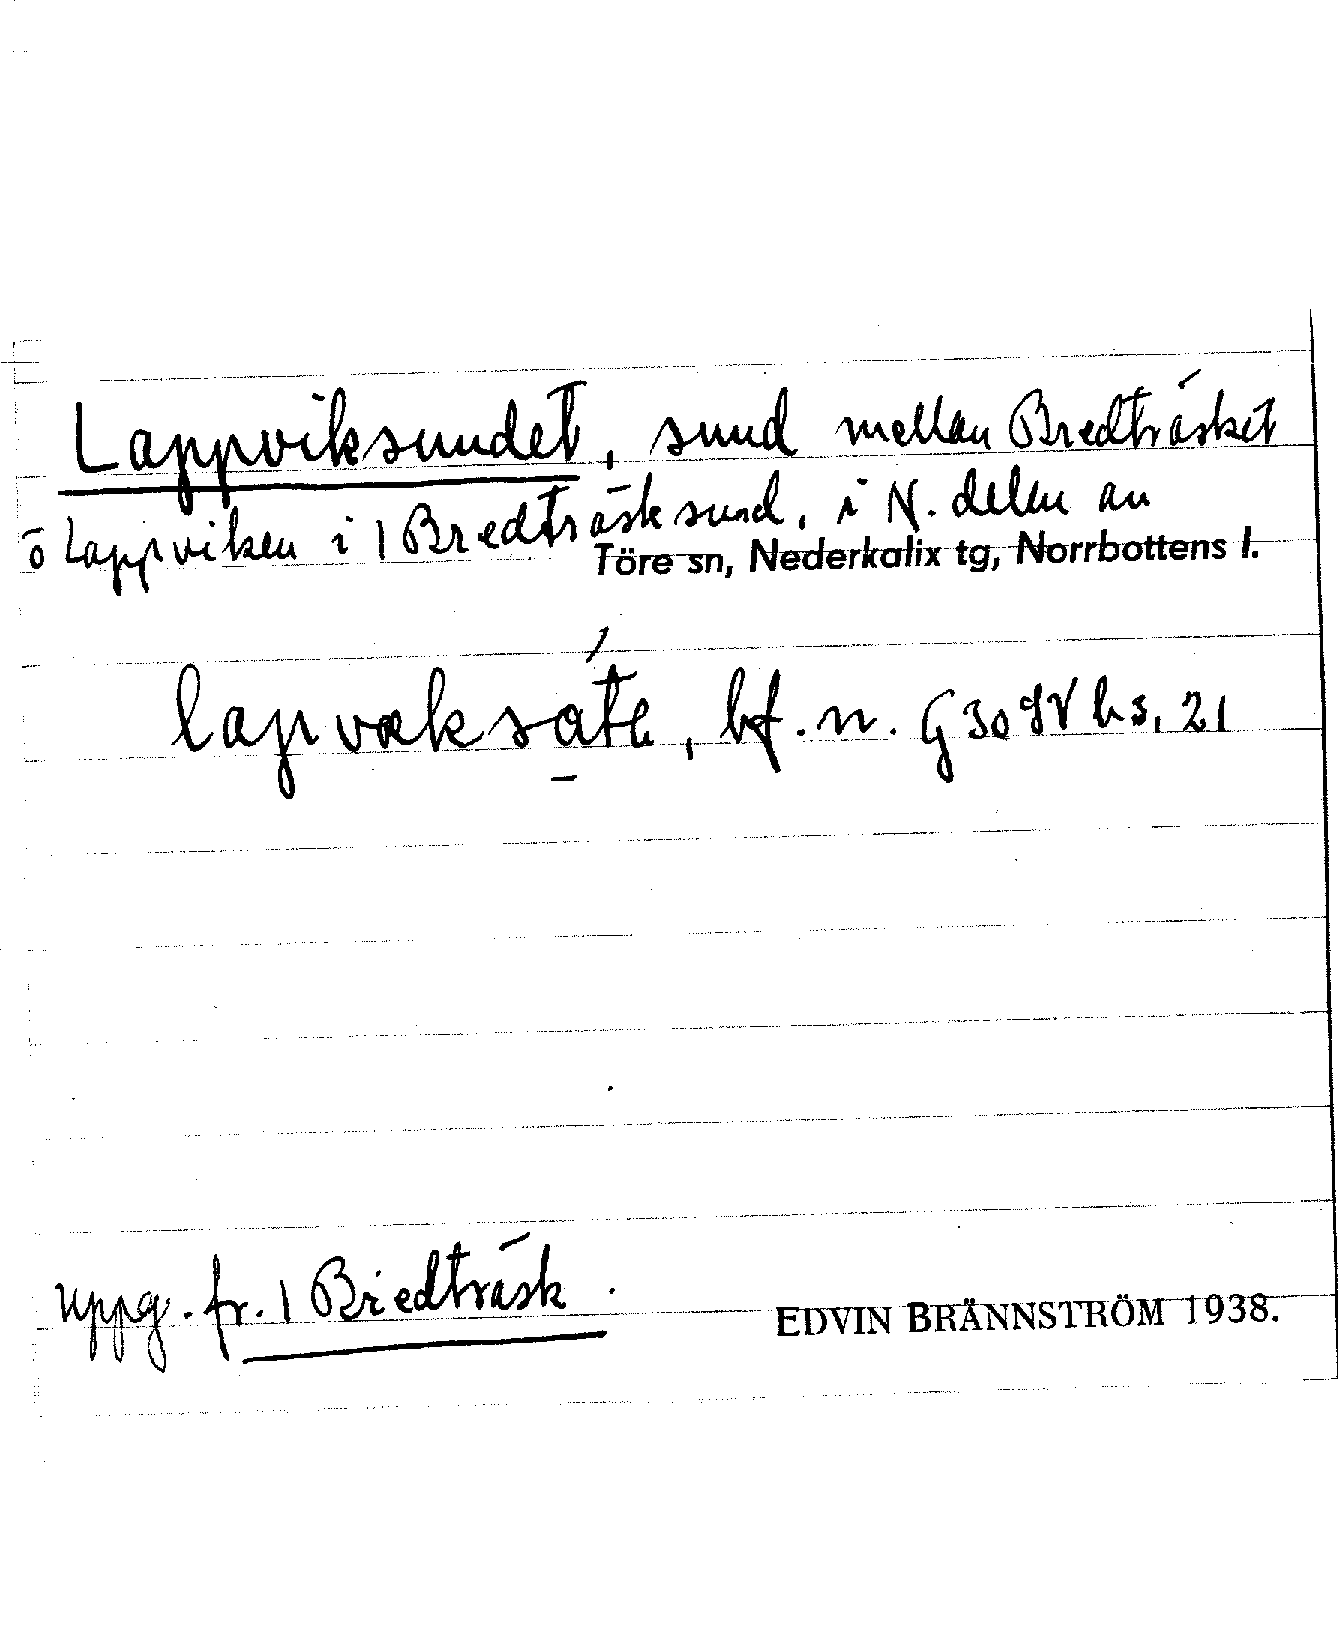 Lappviksundet, sund mellan Bredträsket
o Lappviken i 1 Bredträsksund, i N. delen av
Töre sn, Nederkalix tg, Norrbottens l.
bf. n. G 30 SV hs. 21
uppg. fr. 1 Bredträsk.
EDVIN BRÄNNSTRÖM 1938.